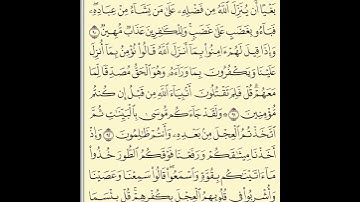 بَغْيًا أَن يُنَزِّلَ ٱللَّهُ مِن فَضْلِهِۦ عَلَىٰ مَن يَشَآءُ مِنْ عِبَادِهِۦ
فَبَآءُو بِغَضَبٍ عَلَىٰ غَضَبٍ وَلِلْكَـٰفِرِينَ عَذَابٌ مُّهِينٌ ٩٠
وَإِذَا قِيلَ لَهُمْ ءَامِنُوا۟ بِمَآ أَنزَلَ ٱللَّهُ قَالُوا۟ نُؤْمِنُ بِمَآ أُنزِلَ
عَلَيْنَا وَيَكْفُرُونَ بِمَا وَرَآءَهُۥ وَهُوَ ٱلْحَقُّ مُصَدِّقًا لِّمَا
مَعَهُمْ قُلْ فَلِمَ تَقْتُلُونَ أَنۢبِيَآءَ ٱللَّهِ مِن قَبْلُ إِن كُنتُم
مُّؤْمِنِينَ ٩١ وَلَقَدْ جَآءَكُم مُّوسَىٰ بِٱلْبَيِّنَـٰتِ ثُمَّ
ٱتَّخَذْتُمُ ٱلْعِجْلَ مِنۢ بَعْدِهِۦ وَأَنتُمْ ظَـٰلِمُونَ ٩٢ وَإِذْ
أَخَذْنَا مِيثَـٰقَكُمْ وَرَفَعْنَا فَوْقَكُمُ ٱلطُّورَ خُذُوا۟
مَآ ءَاتَيْنَـٰكُم بِقُوَّةٍ وَٱسْمَعُوا۟ قَالُوا۟ سَمِعْنَا وَعَصَيْنَا
وَأُشْرِبُوا۟ فِى قُلُوبِهِمُ ٱلْعِجْلَ بِكُفْرِهِمْ قُلْ بِئْسَمَا